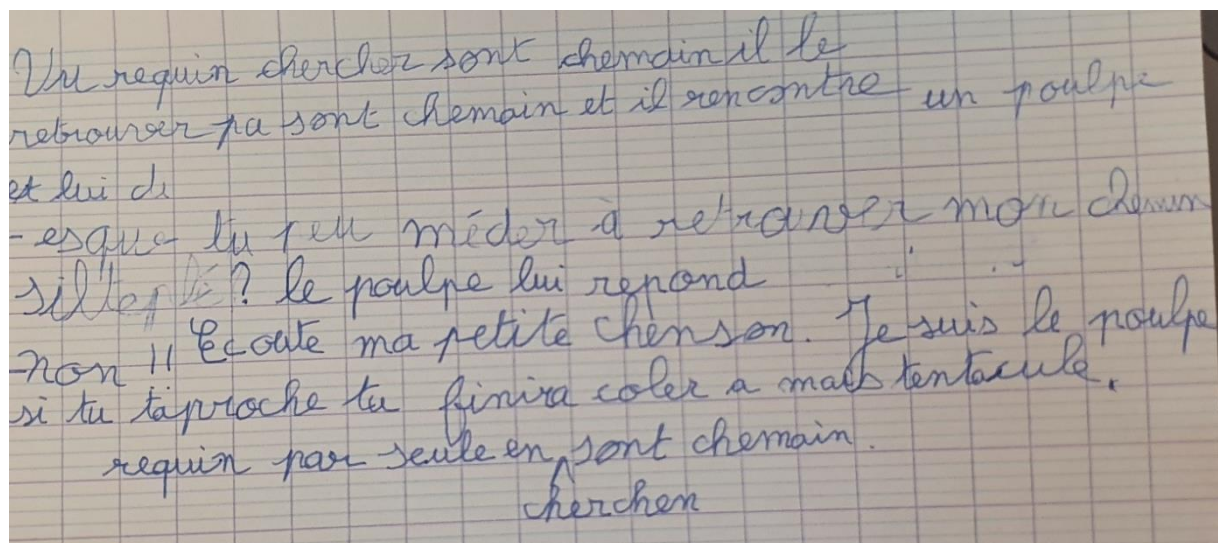 Un requin chercher sont chemain il le
retrouver pa sont chemain et il rencontre un poulpe
et lui di
- esque tu peu méder à retrouver mon chemin
sil'te plé ? le poulpe lui repond
non !! Ecoute ma petite chenson. Je suis le poulpe
si tu taproche tu finira coler a mais tentacule.
requin par seule en sont chemain.
cherchen